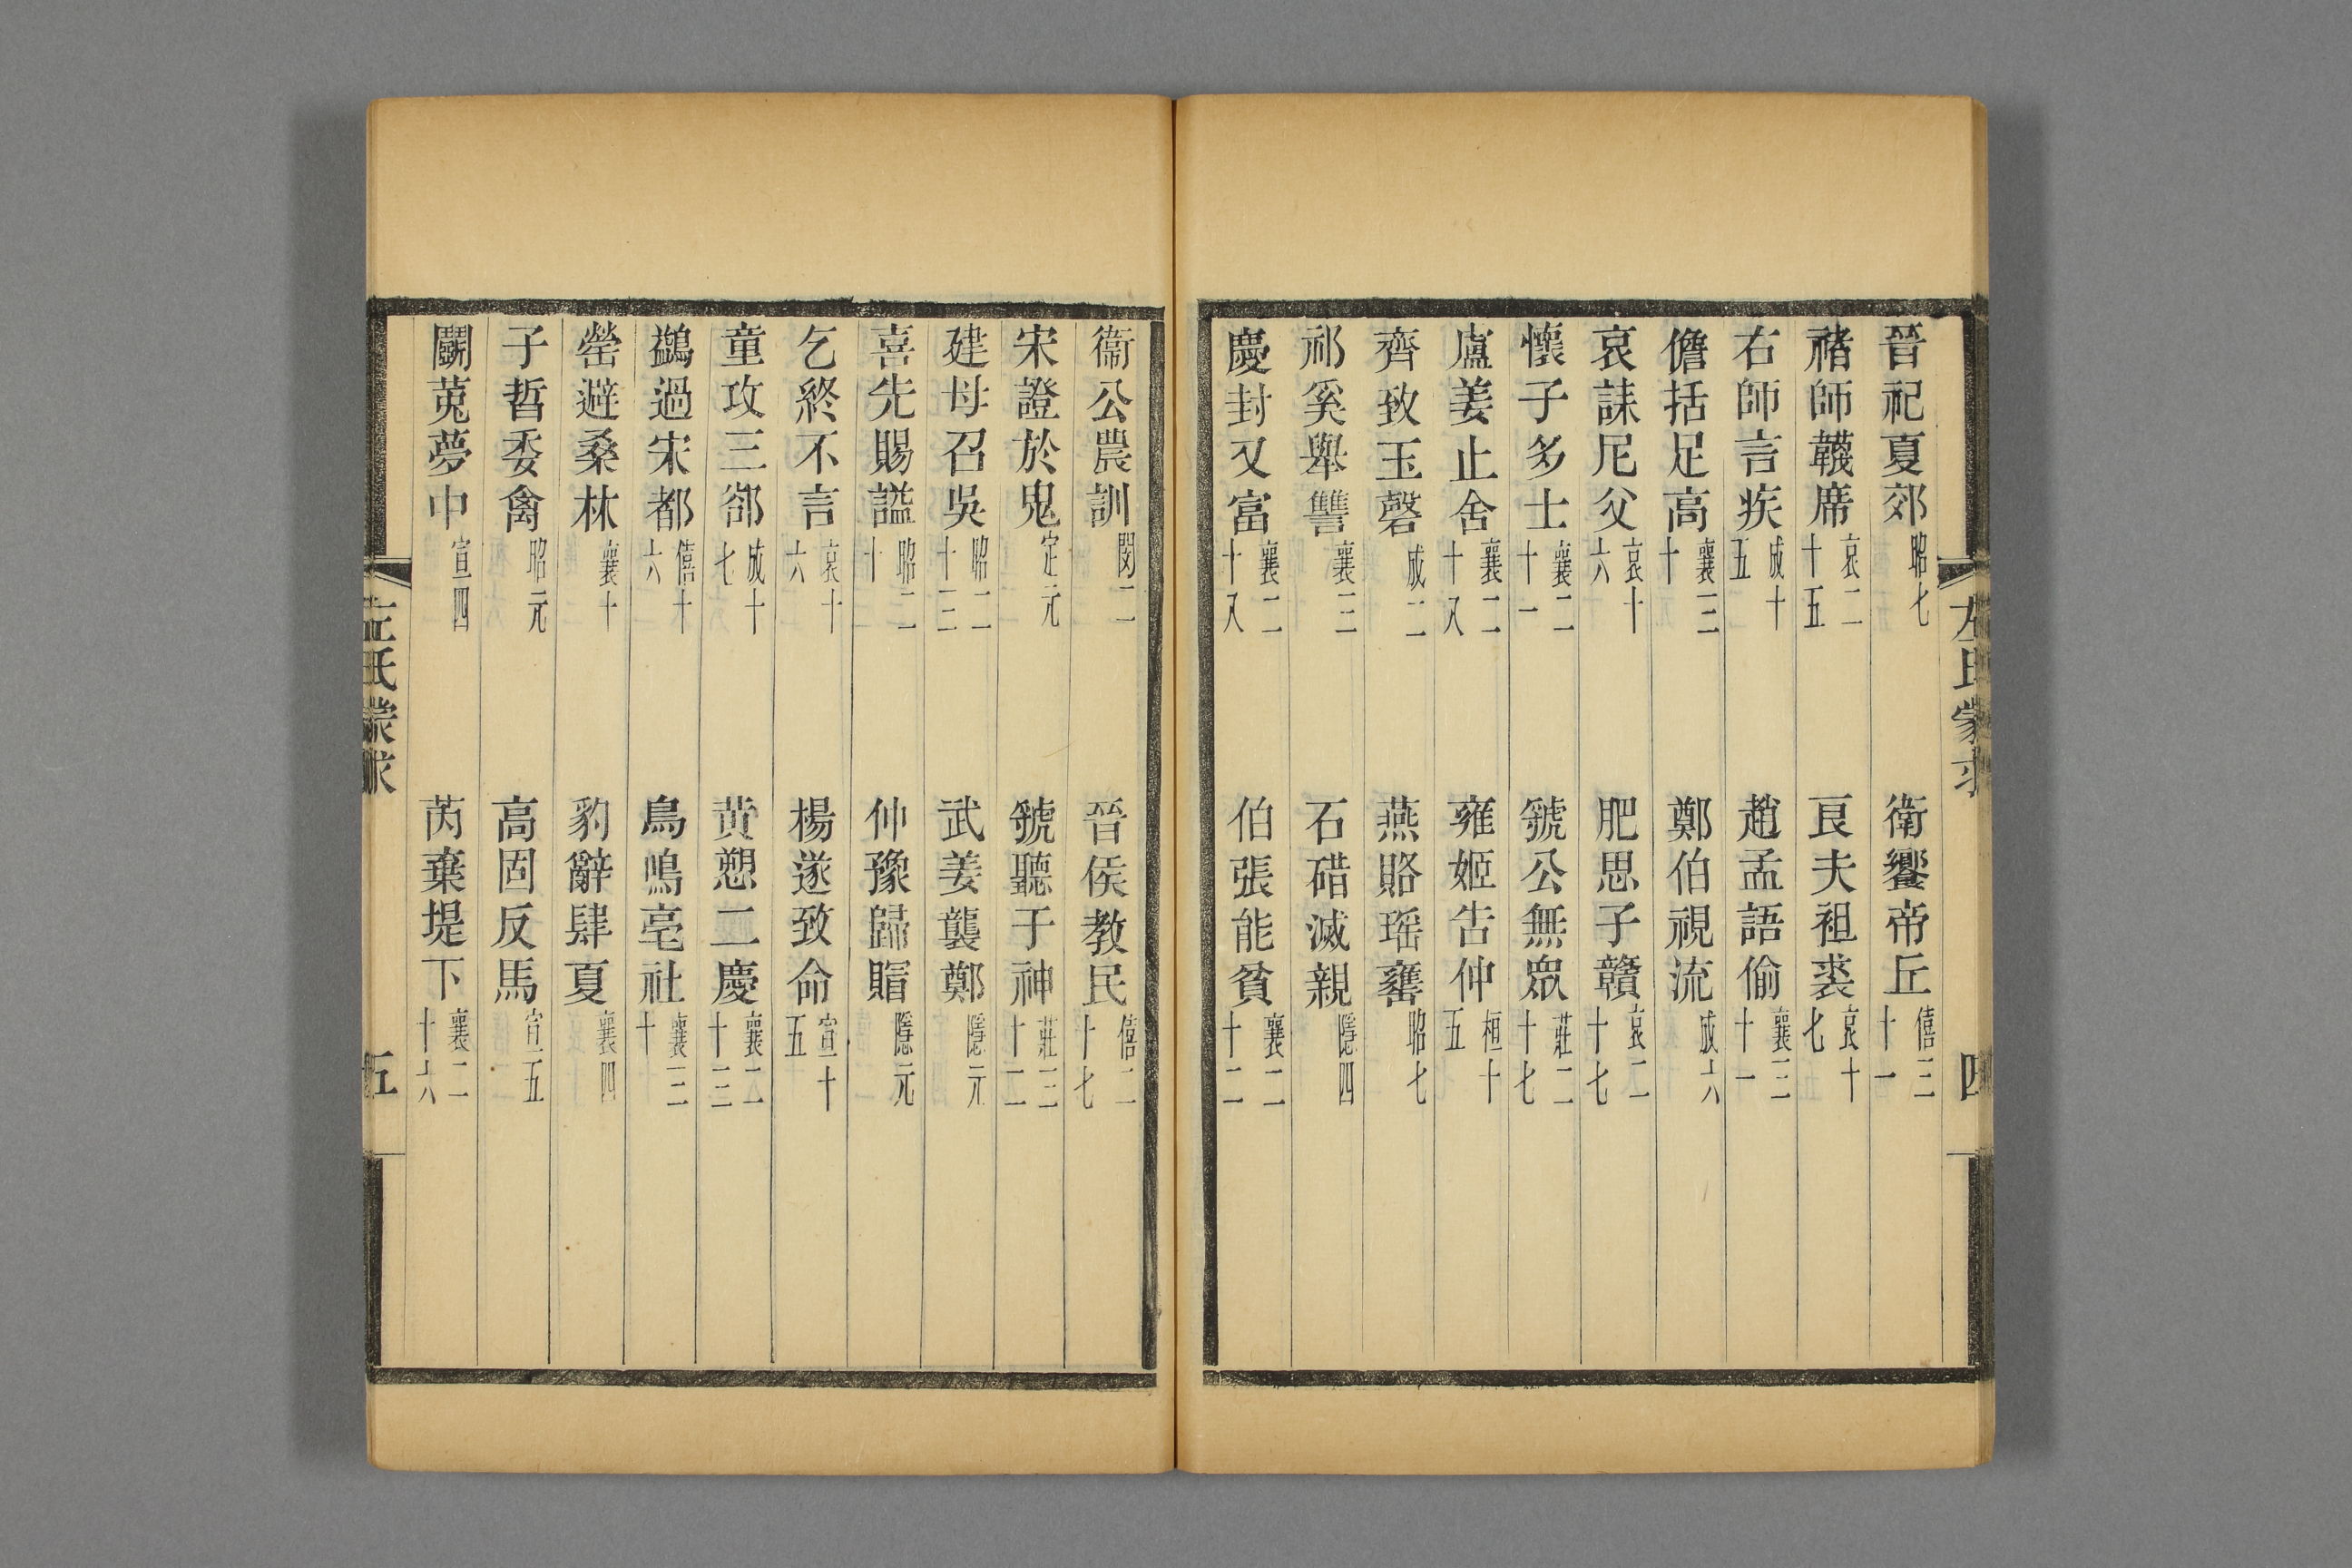 晉祀夏郊昭七 衛饗帝丘僖三十一
褚師韤席哀二十五 良夫袒裘哀十七
右師言疾成十五 趙孟語偷襄三十一
儋括足高襄三十 鄭伯視流成六
哀誄尼父哀十六 肥思子贛哀二十七
懷子多士襄二十一 虢公無眾莊二十七
盧姜止舍襄二十八 雍姬告仲桓十五
齊致玉磬成二 燕賂瑶罋昭七
祁奚舉讐襄三 石碏滅親隱四
慶封又富襄二十八 伯張能貧襄二十二
左氏蒙求 四
衞公農訓閔二 晉侯教民僖二十七
宋證於鬼定元 虢聽于神莊三十二
建母召吳昭二十三 武姜襲鄭隱元
喜先賜謚昭二十 仲豫歸賵隱元
乞終不言哀十六 楊遂致命宣十五
童攻三郤成十七 黄愬二慶襄二十三
鷁過宋都僖十六 鳥鳴亳社襄三十
罃避桑林襄十 豹辭肆夏襄四
子晳委禽昭元 高固反馬宣五
鬭莬夢中宣四 芮棄堤下襄二十六
左氏蒙求 五